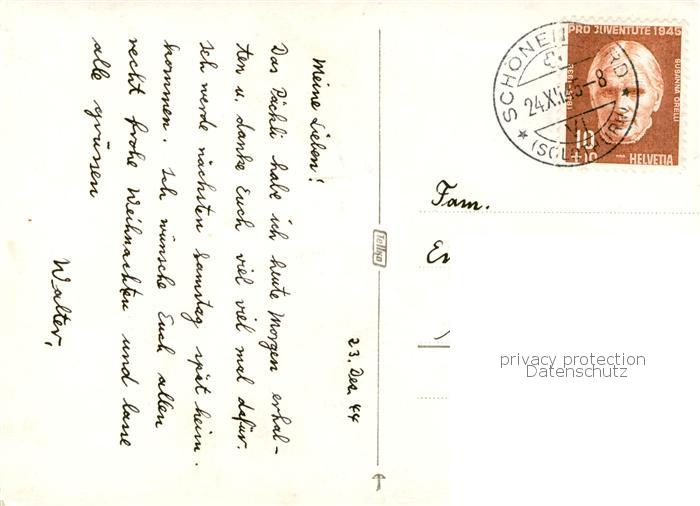 23. Dez. 44
Meine Lieben!
Das Päckli habe ich heute Morgen erhal-
ten u. danke Euch viel viel mal dafür.
Ich werde nächsten Samstag spät heim.
kommen. Ich wünsche Euch allen
recht frohe Weihnachten und lasse
alle grüssen
Walter,
Tellko
PRO JUVENTUTE 1945
SUSANNA ORELLI
10
HELVETIA
24.XII.45-8
VI
Fam.
privacy protection
Datenschutz